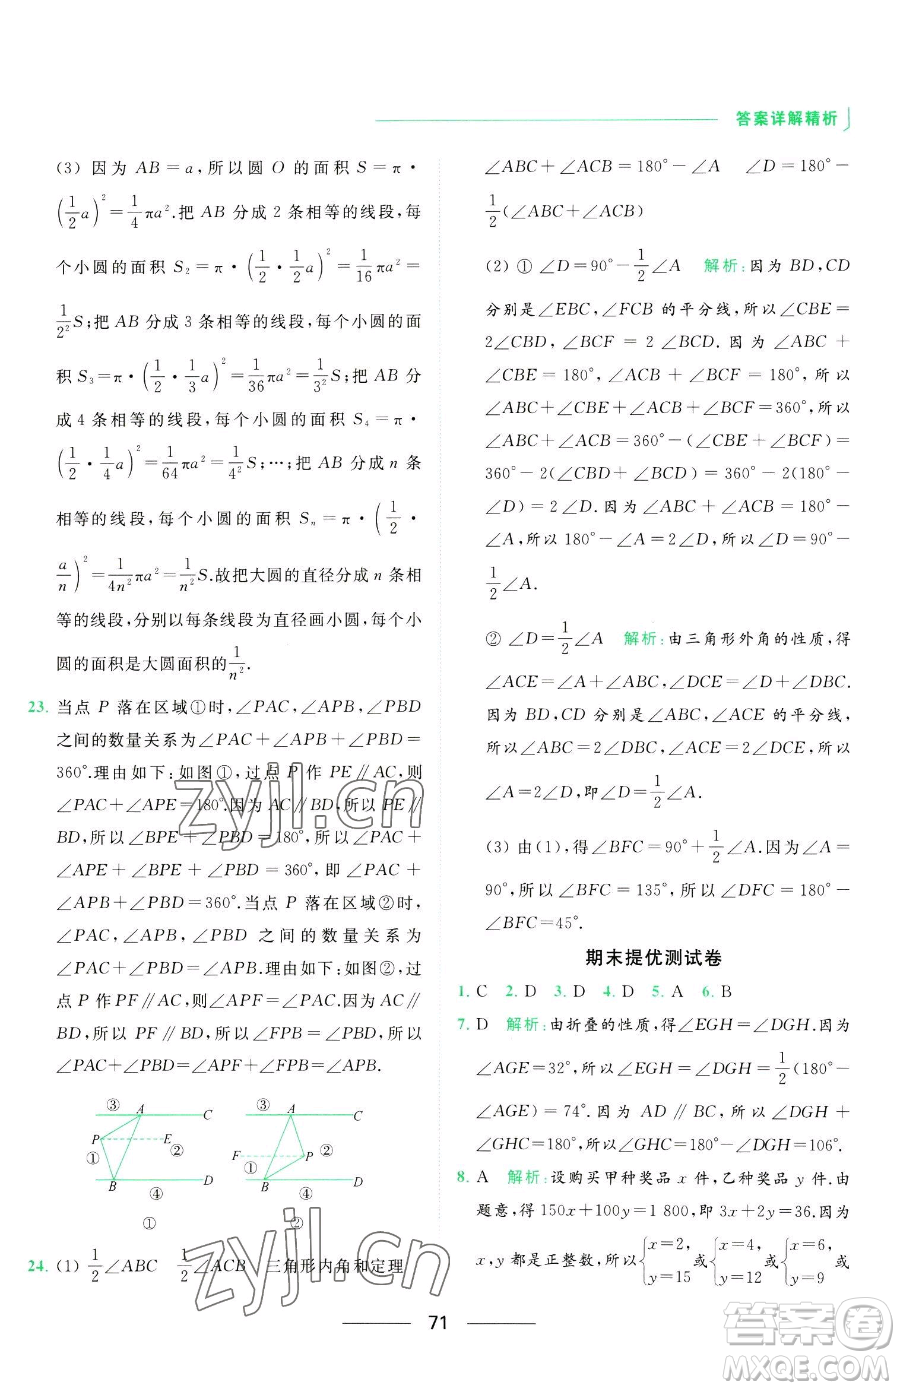 答案详解精析
(3) 因为 AB=a,所以圆 O 的面积 S=π·
(1/2 a)²=1/4 πa².把 AB 分成 2 条相等的线段,每
个小圆的面积 S₂=π·(1/2·1/2 a)²=1/16 πa²=
1/2² S;把 AB 分成 3 条相等的线段,每个小圆的面
积 S₃=π·(1/2·1/3 a)²=1/36 πa²=1/3² S;把 AB 分
成 4 条相等的线段,每个小圆的面积 S₄=π·
(1/2·1/4 a)²=1/64 πa²=1/4² S;…;把 AB 分成 n 条
相等的线段,每个小圆的面积 Sₙ=π·(1/2·
a/n)²=1/4n² πa²=1/n² S.故把大圆的直径分成 n 条相
等的线段,分别以每条线段为直径画小圆,每个小
圆的面积是大圆面积的1/n².
23. 当点 P 落在区域①时,∠PAC,∠APB,∠PBD
之间的数量关系为∠PAC+∠APB+∠PBD=
360°.理由如下:如图①,过点 P 作 PE∥AC,则
∠PAC+∠APE=180°.因为 AC∥BD,所以 PE∥
BD,所以∠BPE+∠PBD=180°,所以∠PAC+
∠APE+∠BPE+∠PBD=360°,即∠PAC+
∠APB+∠PBD=360°.当点 P 落在区域②时,
∠PAC,∠APB,∠PBD 之间的数量关系为
∠APB=∠PAC+∠PBD.理由如下:如图②,过
点 P 作 PF∥AC,则∠PAC=∠APF.因为 AC∥
BD,所以 PF∥BD,所以∠FPB=∠PBD,所以
∠PAC+∠PBD=∠APF+∠FPB=∠APB.
③ A C
P E
① ②
B D
④
①
③ A C
F P ②
①
B D
④
②
24. (1) 1/2∠ABC 1/2∠ACB 三角形内角和定理
∠ABC+∠ACB=180°-∠A ∠D=180°-
1/2(∠ABC+∠ACB)
(2) ① ∠D=90°-1/2∠A 解析:因为 BD,CD
分别是∠EBC,∠FCB 的平分线,所以∠CBE=
2∠CBD,∠BCF=2∠BCD.因为∠ABC+
∠CBE=180°,∠ACB+∠BCF=180°,所以
∠ABC+∠CBE+∠ACB+∠BCF=360°,所以
∠ABC+∠ACB=360°-(∠CBE+∠BCF)=
360°-2(∠CBD+∠BCD)=360°-2(180°-
∠D)=2∠D.因为∠ABC+∠ACB=180°-
∠A,所以 180°-∠A=2∠D,所以∠D=90°-
1/2∠A.
② ∠D=1/2∠A 解析:由三角形外角的性质,得
∠ACE=∠A+∠ABC,∠DCE=∠D+∠DBC.
因为 BD,CD 分别是∠ABC,∠ACE 的平分线,
所以∠ABC=2∠DBC,∠ACE=2∠DCE,所以
∠A=2∠D,即∠D=1/2∠A.
(3) 由(1),得∠BFC=90°+1/2∠A.因为∠A=
90°,所以∠BFC=135°,所以∠DFC=180°-
∠BFC=45°.
期末提优测试卷
1. C 2. D 3. D 4. D 5. A 6. B
7. D 解析:由折叠的性质,得∠EGH=∠DGH.因为
∠AGE=32°,所以∠EGH=∠DGH=1/2(180°-
∠AGE)=74°.因为 AD∥BC,所以∠DGH+
∠GHC=180°,所以∠GHC=180°-∠DGH=106°.
8. A 解析:设购买甲种奖品 x 件,乙种奖品 y 件.由
题意,得 150x+100y=1 800,即 3x+2y=36.因为
x,y 都是正整数,所以{x=2, y=15 或{x=4, y=12 或{x=6, y=9 或
71
zyjl.cn
zyjl.cn
答案圈
MXQE.COM